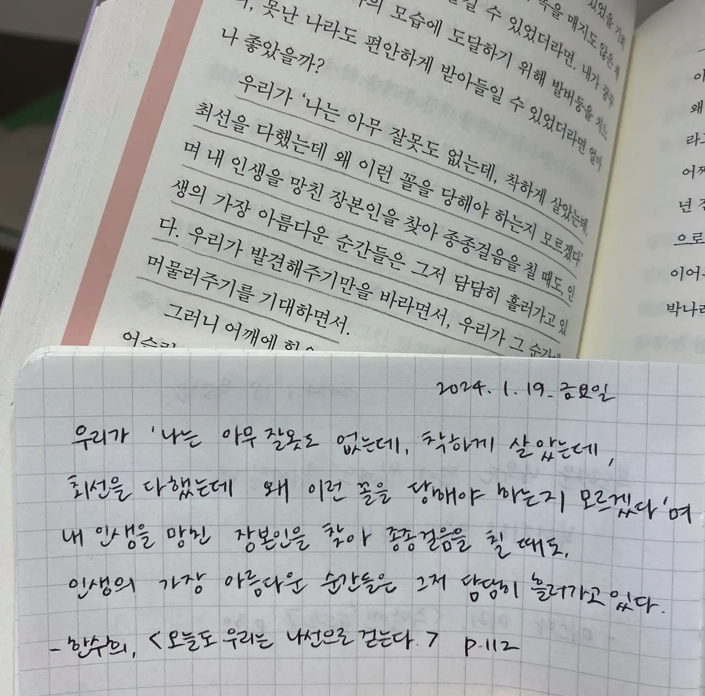 있었을
욕을 매지도 않은 채
수 있었더라면. 내가 꿈꾸
의 모습에 도달하기 위해 발버둥을 치느
, 못난 나라도 편안하게 받아들일 수 있었더라면 얼마
나 좋았을까?
우리가 '나는 아무 잘못도 없는데, 착하게 살았는데,
최선을 다했는데 왜 이런 꼴을 당해야 하는지 모르겠다'
며 내 인생을 망친 장본인을 찾아 종종걸음을 칠 때도, 인
생의 가장 아름다운 순간들은 그저 담담히 흘러가고 있
다. 우리가 발견해주기만을 바라면서, 우리가 그 순간에
머물러주기를 기대하면서.
그러니 어깨에 힘
이
왜
라고
어쩌
년 전
으로
이어
박나래
2024. 1. 19. 금요일
우리가 '나는 아무 잘못도 없는데, 착하게 살았는데,
최선을 다했는데 왜 이런 꼴을 당해야 하는지 모르겠다'며
내 인생을 망친 장본인을 찾아 종종걸음을 칠 때도,
인생의 가장 아름다운 순간들은 그저 담담히 흘러가고 있다.
- 한수희, <오늘도 우리는 나선으로 걷는다.> p.112